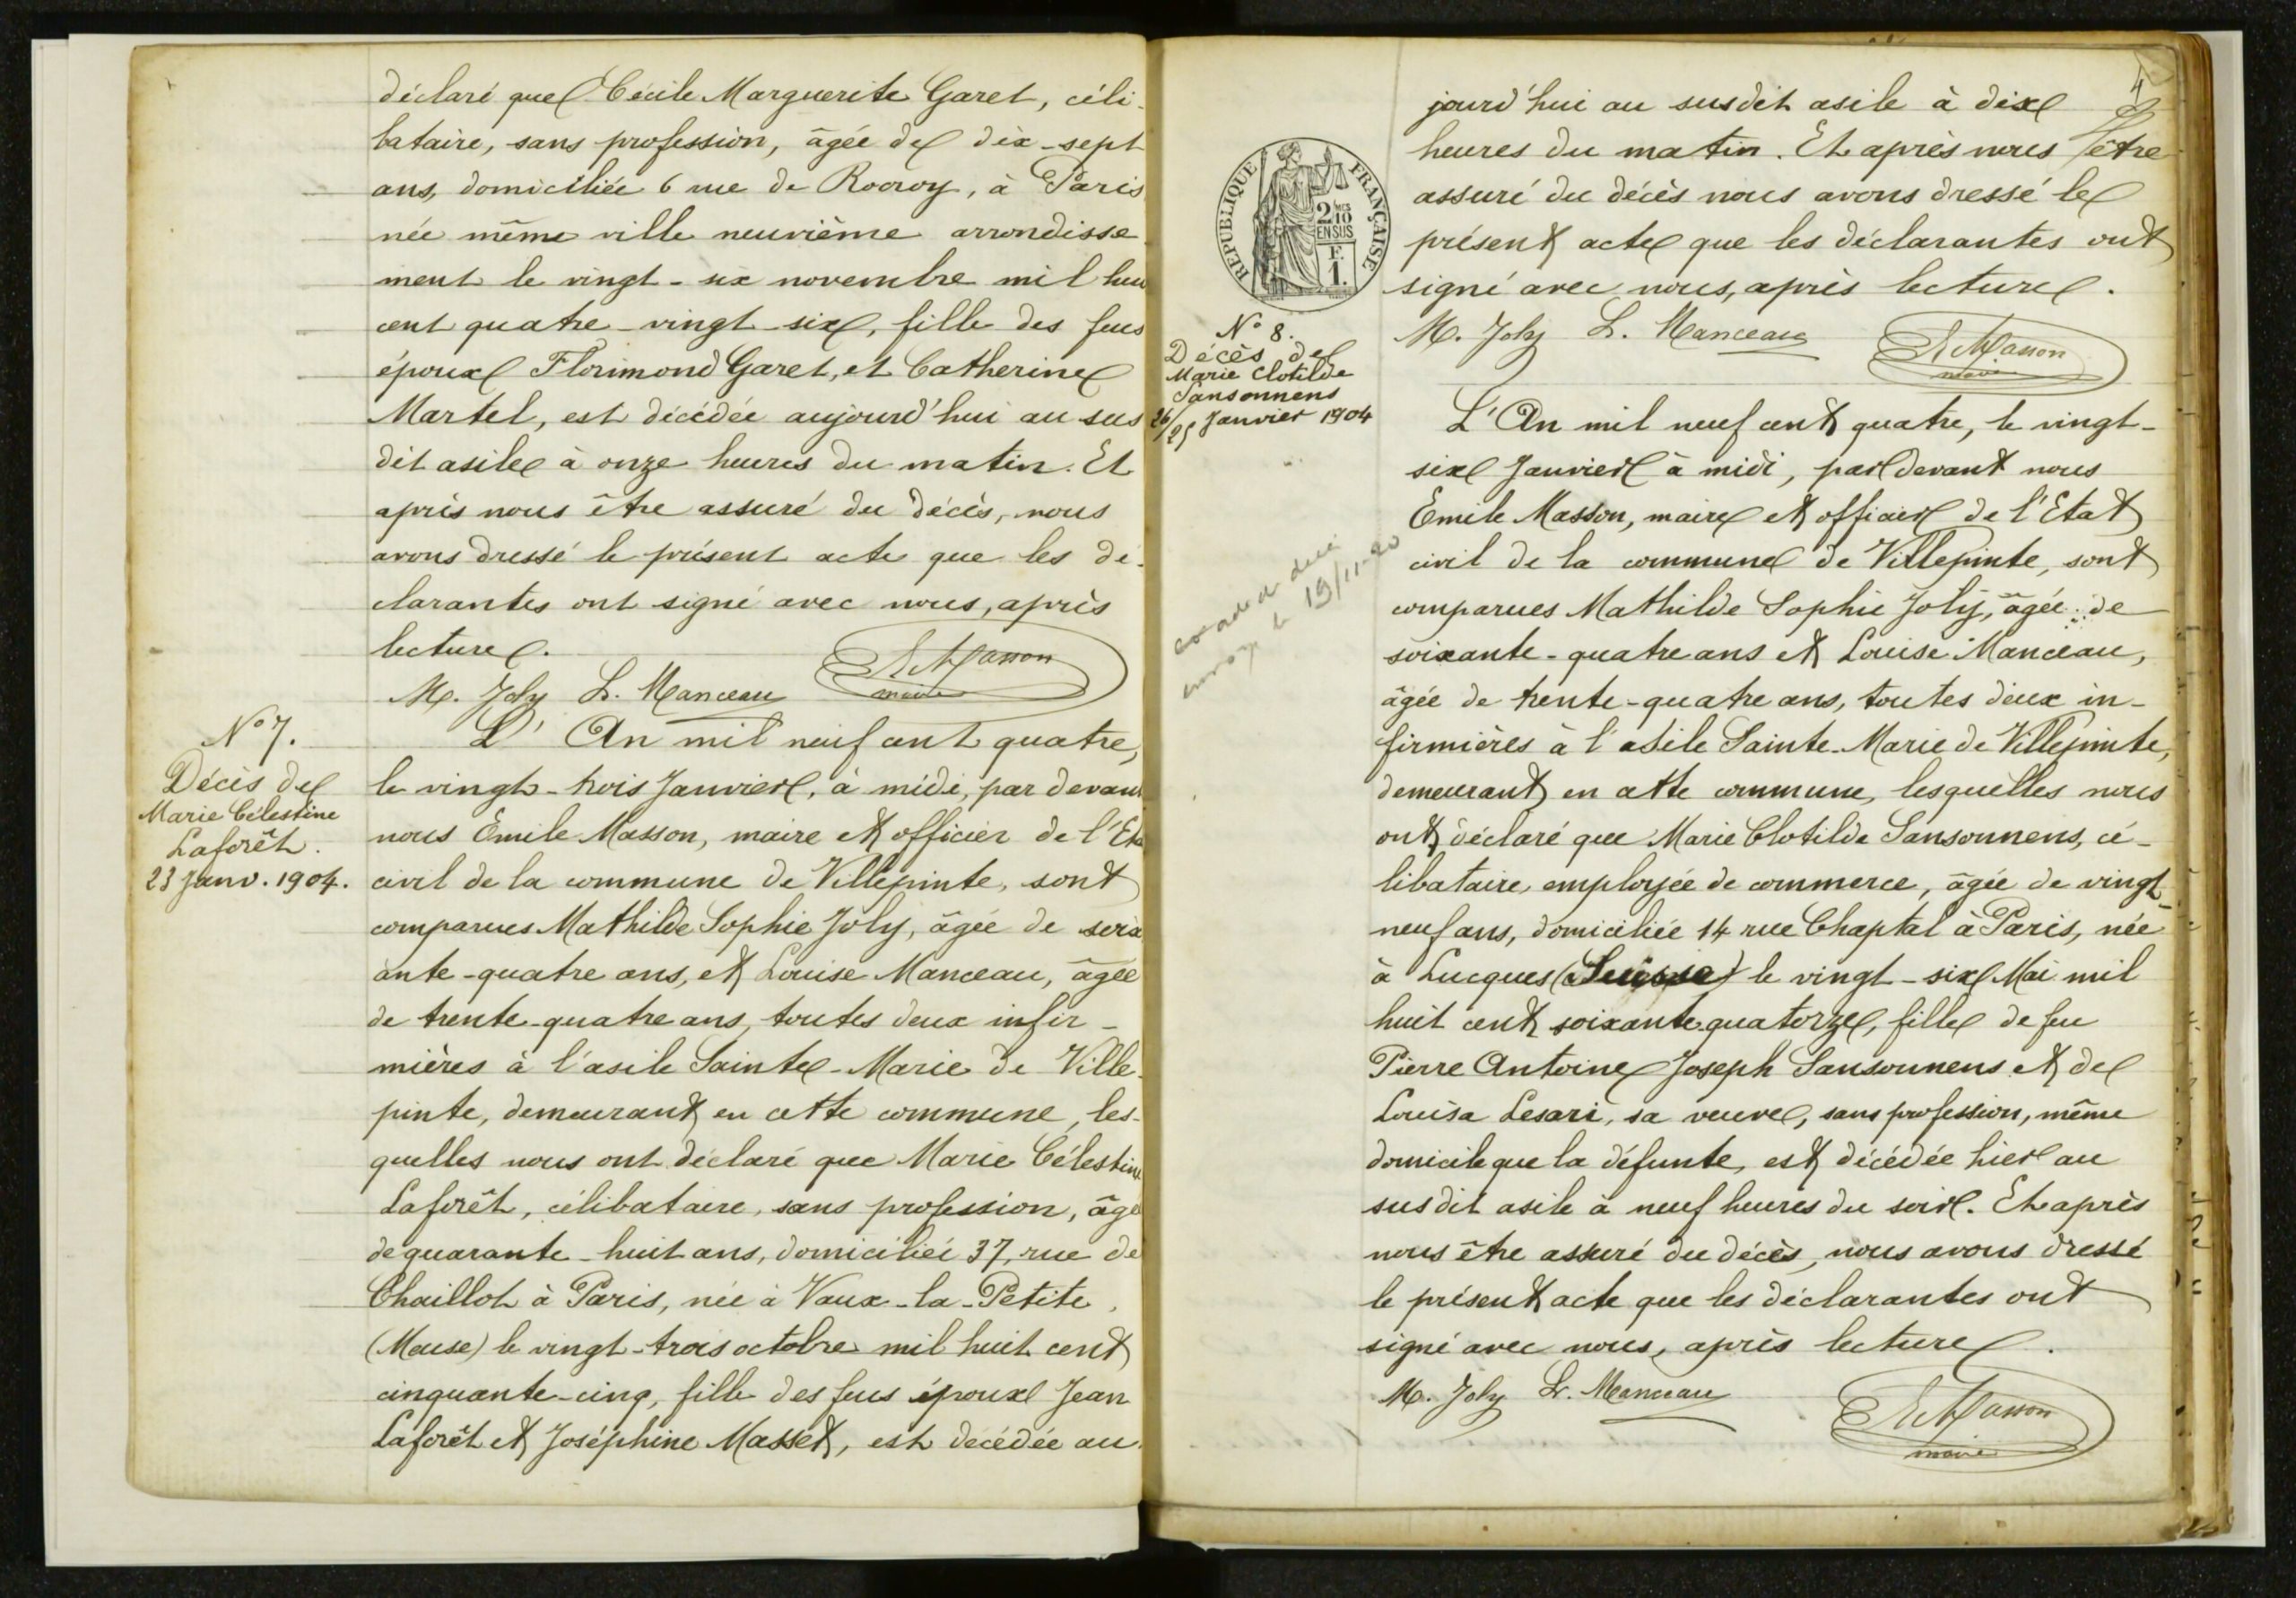 déclaré que Cécile Marguerite Garet, céli-
bataire, sans profession, âgée de dix-sept
ans, domiciliée 6 rue de Rocroy, à Paris
née même ville neuvième arrondisse-
ment le vingt-six novembre mil huit
cent quatre-vingt-six, fille des feus
époux Florimond Garet, et Catherine
Martel, est décédée aujourd'hui au sus
dit asile à onze heures du matin. Et
après nous être assuré du décès, nous
avons dressé le présent acte que les dé-
clarantes ont signé avec nous, après
lecture.
M. Joly L. Manceau E Masson
maire
N° 7.
Décès de
Marie Célestine
Laforêt.
23 Janv. 1904.
L'An mil neuf cent quatre,
le vingt-trois Janvier, à midi, par devant
nous Emile Masson, maire et officier de l'Etat
civil de la commune de Villepinte, sont
comparues Mathilde Sophie Joly, âgée de soix
ante-quatre ans, et Louise Manceau, âgée
de trente-quatre ans, toutes deux infir-
mières à l'asile Sainte-Marie de Ville-
pinte, demeurant en cette commune, les-
quelles nous ont déclaré que Marie Célestine
Laforêt, célibataire, sans profession, âgé
de quarante-huit ans, domiciliée 37, rue de
Chaillot à Paris, née à Vaux-la-Petite,
(Meuse) le vingt-trois octobre mil huit cent
cinquante-cinq, fille des feus époux Jean
Laforêt et Joséphine Masset, est décédée au
4
jourd'hui au susdit asile à dix
heures du matin. Et après nous être
assuré du décès nous avons dressé le
présent acte que les déclarantes ont
signé avec nous, après lecture.
M. Joly L. Manceau E Masson
maire
REPUBLIQUE FRANÇAISE
2/10
EN SUS
F.
1.
N° 8.
Décès de
Marie Clotilde
Sansonnens
26/25 Janvier 1904
19/11-20
L'An mil neuf cent quatre, le vingt-
six Janvier à midi, par devant nous
Emile Masson, maire et officier de l'Etat
civil de la commune de Villepinte, sont
comparues Mathilde Sophie Joly, âgée de
soixante-quatre ans et Louise Manceau,
âgée de trente-quatre ans, toutes deux in-
firmières à l'asile Sainte-Marie de Villepinte,
demeurant en cette commune, lesquelles nous
ont déclaré que Marie Clotilde Sansonnens, cé-
libataire, employée de commerce, âgée de vingt-
neuf ans, domiciliée 14 rue Chaptal à Paris, née
à Lucques (Suisse) le vingt-six Mai mil
huit cent soixante quatorze, fille de feu
Pierre Antoine Joseph Sansonnens et de
Louisa Lesari, sa veuve, sans profession, même
domicile que la défunte, est décédée hier au
susdit asile à neuf heures du soir. Et après
nous être assuré du décès, nous avons dressé
le présent acte que les déclarantes ont
signé avec nous, après lecture.
M. Joly L. Manceau E Masson
maire